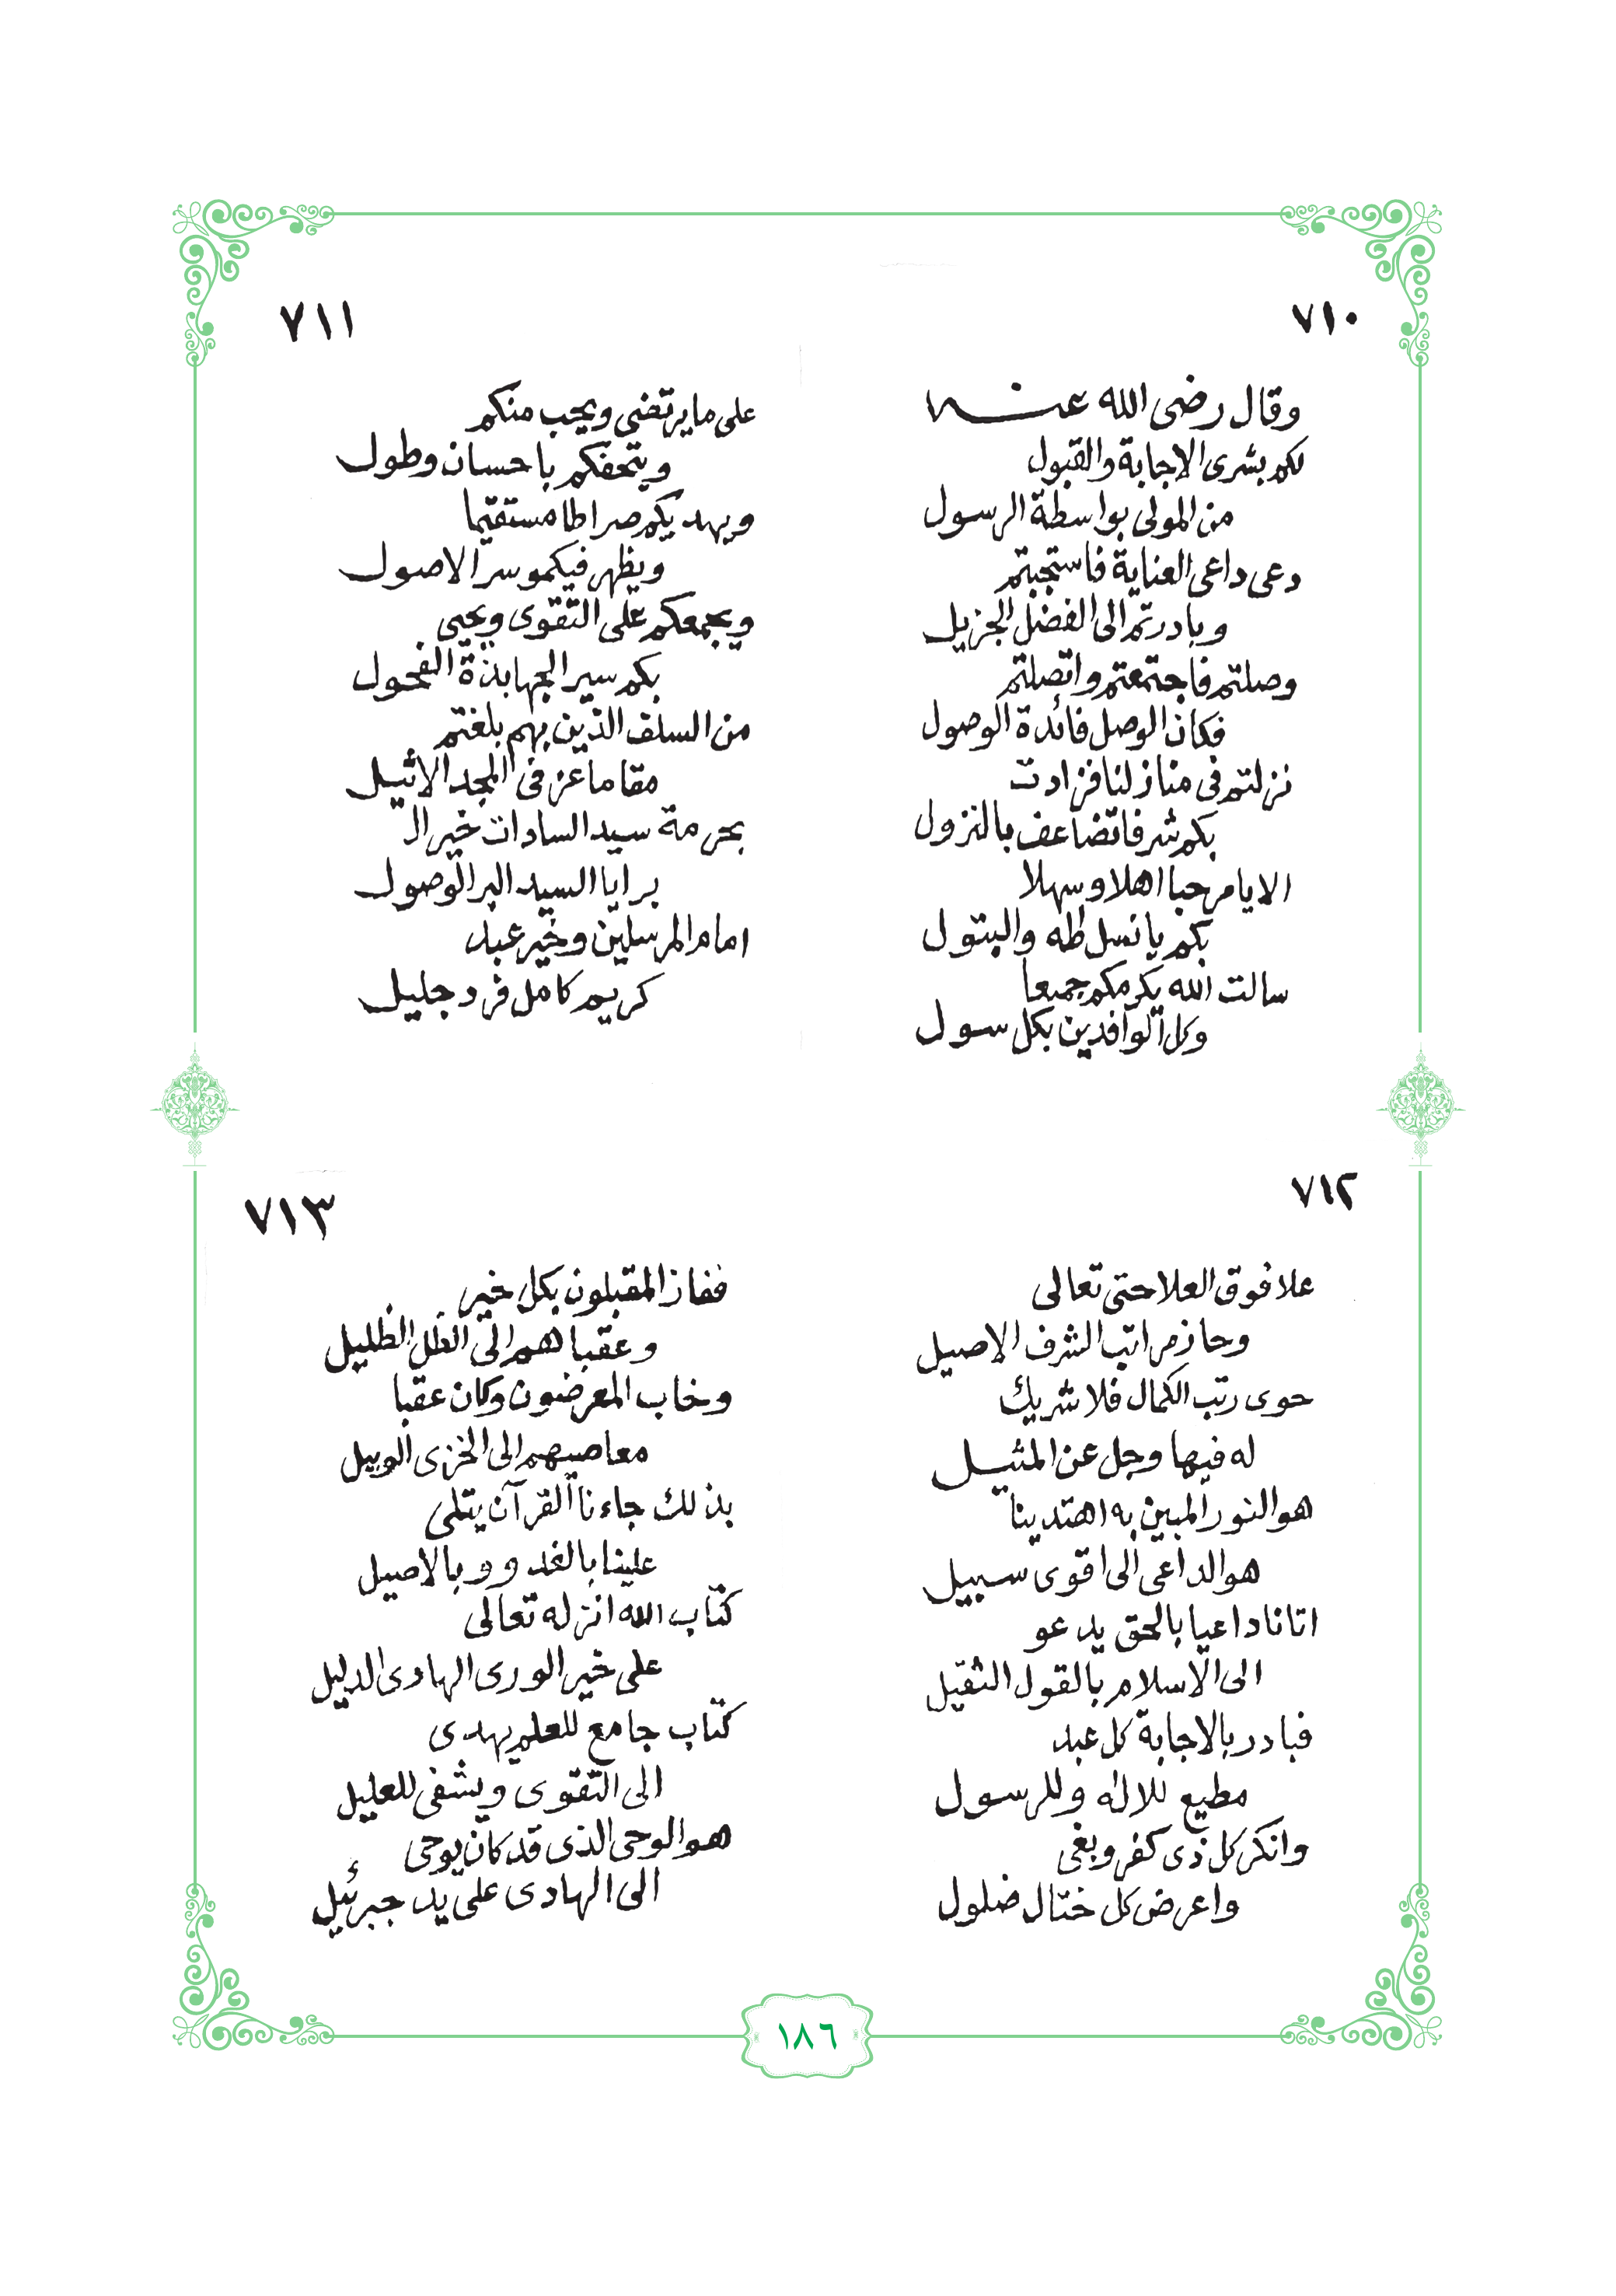 ٧١٠
وقال رضى الله عنه
لكم بشرى الاجابة والقبول
من المولى بواسطة الرسول
دعى داعى العناية فاستجبتم
وبادرتم الى الفضل الجزيل
وصلتم فاجتمعتم واتصلتم
فكان الوصل فائدة الوصول
نزلتم فى منازلنا فزادت
بكم شرفا تضاعف بالنزول
الا يا مرحبا اهلا وسهلا
بكم يا نسل طه والبتول
سالت الله يكرمكم جميعا
وكل الوافدين بكل سول
٧١١
على ما يرتضى ويجب منكم
ويتحفكم باحسان وطول
ويهديكم صراطا مستقيما
ويظهر فيكمو سر الاصول
ويجمعكم على التقوى ويحيى
بكم سير الجهابذة الفحول
من السلف الذين بهم بلغتم
مقاما عز فى المجد الاثيل
بحرمة سيد السادات خير ال
برايا السيد البر الوصول
امام المرسلين وخير عبد
كريم كامل فرد جليل
٧١٢
علا فوق العلا حتى تعالى
وحاز مراتب الشرف الاصيل
حوى رتب الكمال فلا شريك
له فيها وجل عن المثيل
هو النور المبين به اهتدينا
هو الداعى الى اقوى سبيل
اتانا داعيا بالحق يدعو
الى الاسلام بالقول الثقيل
فبادر بالاجابة كل عبد
مطيع للاله وللرسول
وانكر كل ذى كفر وبغى
واعرض كل ختال ضلول
٧١٣
ففاز المقبلون بكل خير
وعقباهم الى الظل الظليل
وخاب المعرضون وكان عقبا
معاصيهم الى الخزى الوبيل
بذلك جاءنا القرآن يتلى
علينا بالغدو وبالاصيل
كتاب الله انزله تعالى
على خير الورى الهادى الدليل
كتاب جامع للعلم يهدى
الى التقوى ويشفى للعليل
هو الوحى الذى قد كان يوحى
الى الهادى على يد جبرئيل
١٨٦